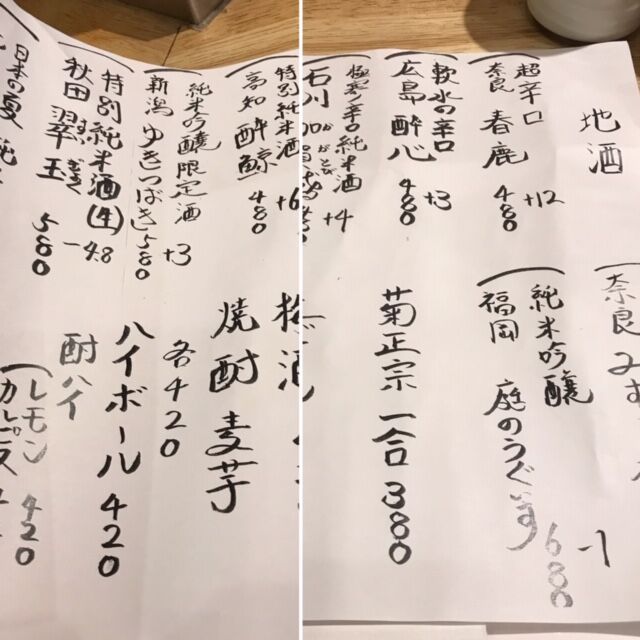 地酒
超辛口
奈良 春鹿 +12
480
軟水の辛口
広島 酔心 +3
480
極寒辛口純米酒
石川 加賀鳶 +4
480
純米吟醸
福岡 庭のうぐいす -1
680
奈良
菊正宗 一合 380
特別純米酒
高知 酔鯨 +6
480
純米吟醸限定酒
新潟 ゆきつばき +3
580
特別純米酒(生)
秋田 翠玉 -4.8
580
日本の夏
梅酒
焼酎 麦 芋
各420
ハイボール 420
酎ハイ
レモン 420
カルピス